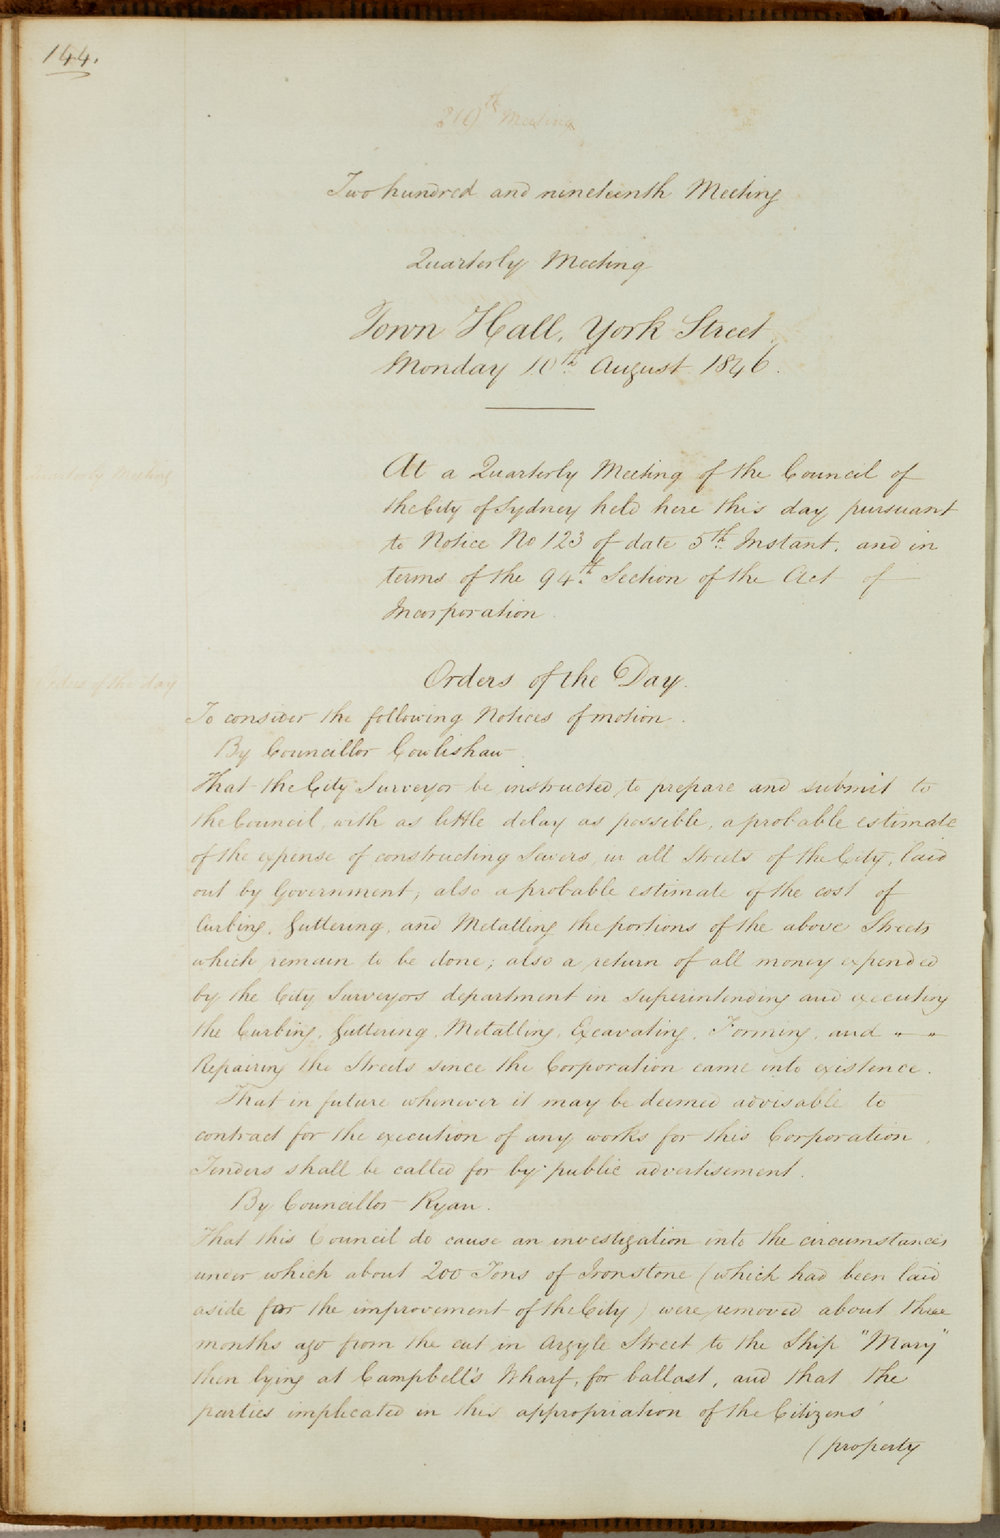 144.
219th Meeting
Two hundred and nineteenth Meeting
Quarterly Meeting
Town Hall, York Street.
Monday 10th August 1846.
Quarterly Meeting
At a Quarterly Meeting of the Council of
the City of Sydney held here this day pursuant
to Notice No 123 of date 5th Instant, and in
terms of the 94th Section of the Act of
Incorporation.
Orders of the day
Orders of the Day.
To consider the following Notices of motion.
By Councillor Cowlishaw
That the City Surveyor be instructed to prepare and submit to
the Council, with as little delay as possible, a probable estimate
of the expense of constructing Sewers, in all Streets of the City, laid
out by Government; also a probable estimate of the cost of
Curbing, Guttering, and Metalling the portions of the above Streets
which remain to be done; also a return of all money expended
by the City Surveyors department in superintending and executing
the Curbing, Guttering, Metalling, Excavating, Forming, and " "
Repairing the Streets since the Corporation came into existence.
That in future whenever it may be deemed advisable to
contract for the execution of any works for this Corporation,
Tenders shall be called for by public advertisement.
By Councillor Ryan.
That this Council do cause an investigation into the circumstances
under which about 200 Tons of Ironstone (which had been laid
aside for the improvement of the City) were removed about three
months ago from the cut in Argyle Street to the Ship "Mary"
then lying at Campbell's Wharf, for ballast, and that the
parties implicated in this appropriation of the Citizens'
(property